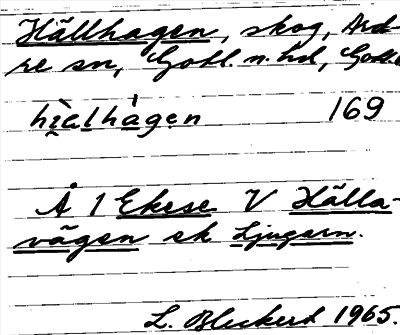 Hällhagen, skog, Ard-
re sn, Gotl. n. hd, Gotl.
hi̯àlhágen 169
Å 1 Ekese V Hälla-
vägen sk Ljugarn.
L. Bleckerd 1965.